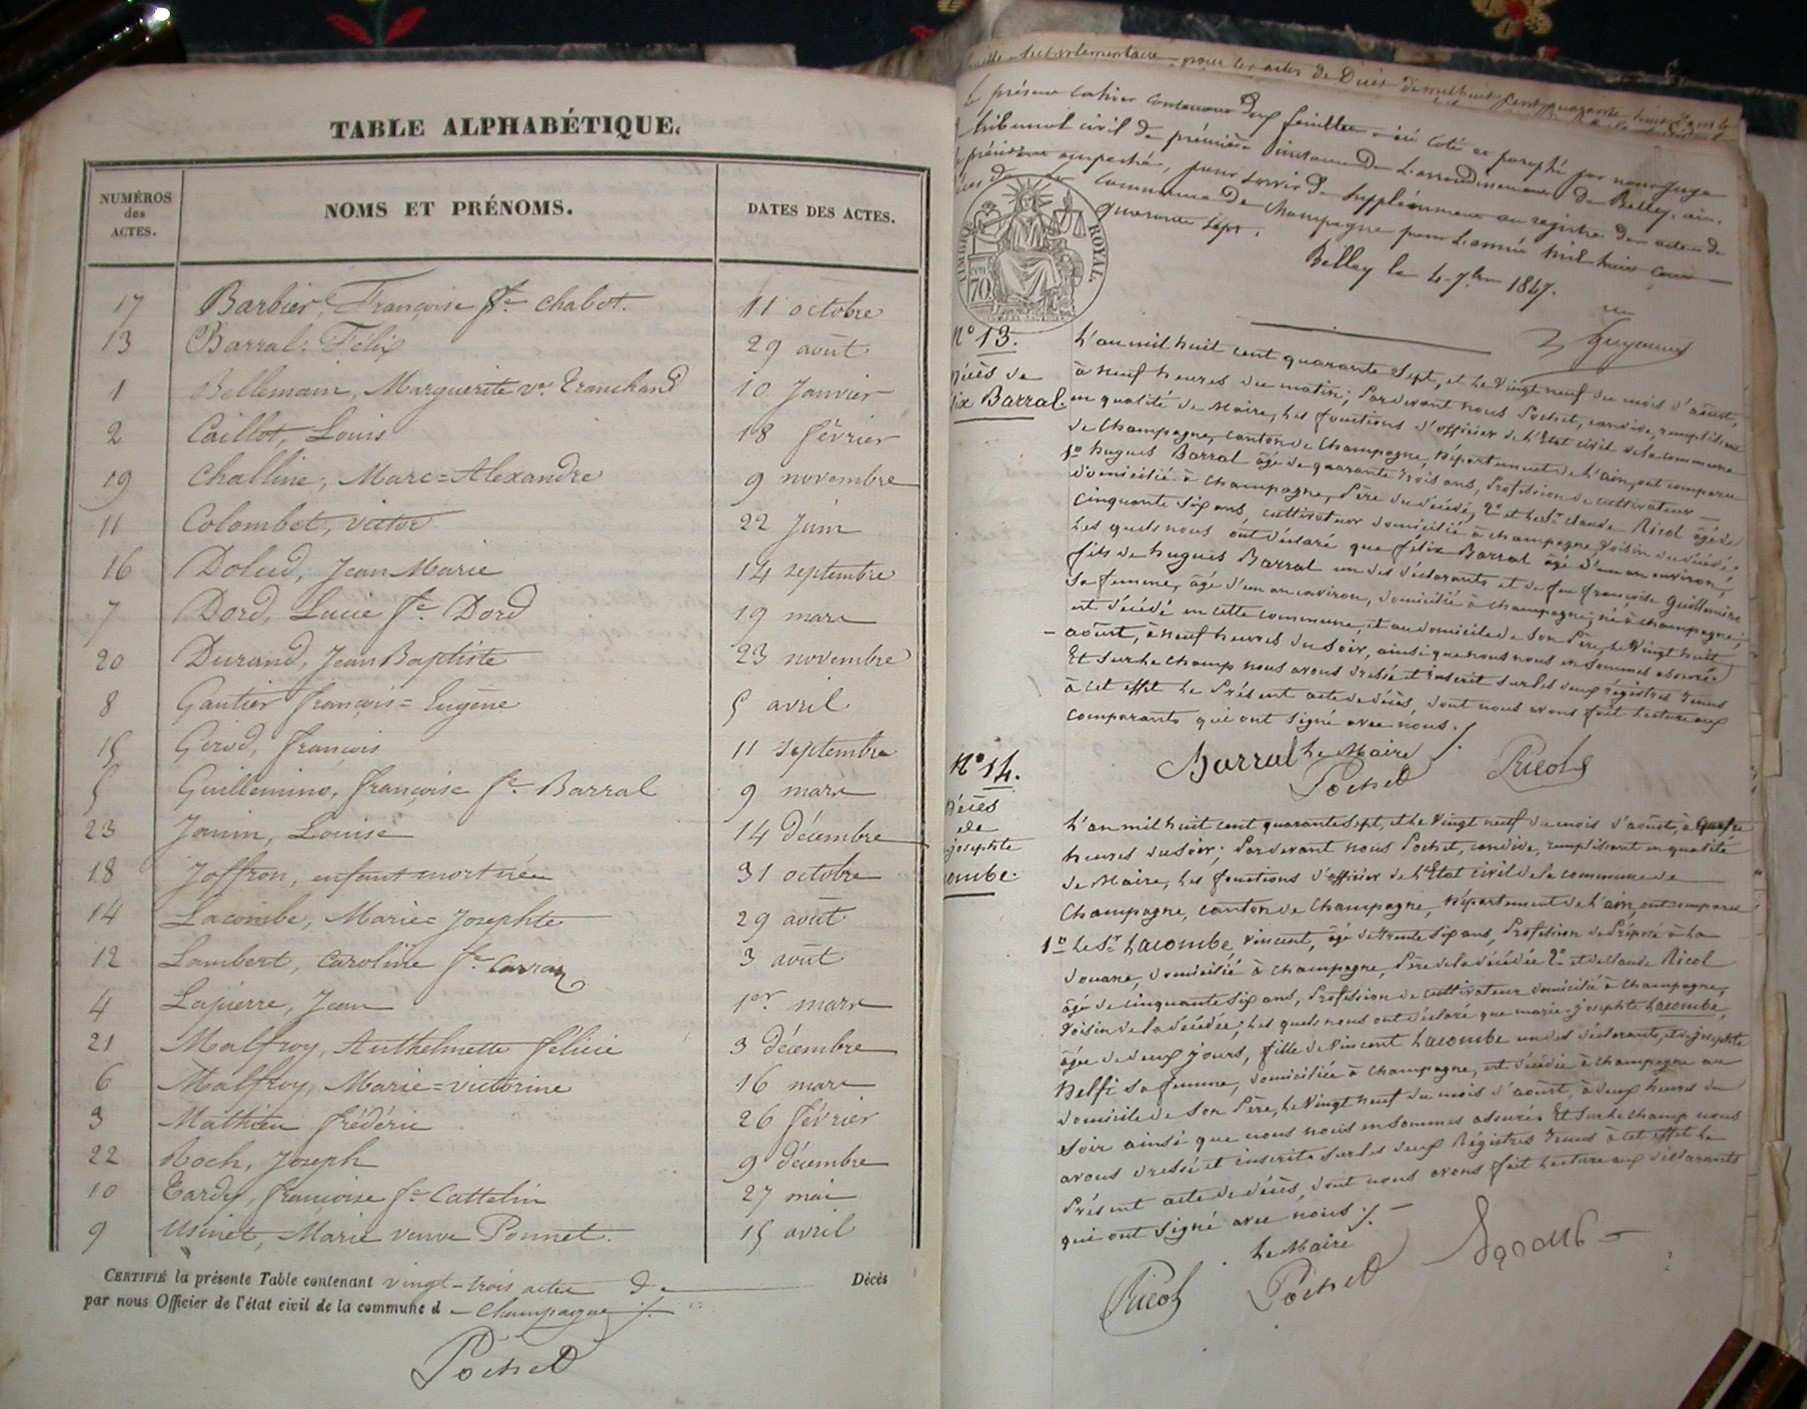 TABLE ALPHABÉTIQUE.
NUMÉROS des ACTES.
NOMS ET PRÉNOMS.
DATES DES ACTES.
17 Barbier, Françoise fe chabot. 11 octobre
13 Barral, Félix 29 août
1 Bellemain, Marguerite ve Tranchand 10 Janvier
2 Caillot, Louis 18 février
19 Challine, Marc=Alexandre 9 novembre
11 Colombet, victor 22 Juin
16 Dolud, Jean Marie 14 septembre
7 Dord, Lucie fe Dord 19 mars
20 Durand, Jean Baptiste 23 novembre
8 Gautier françois=Eugène 5 avril
15 Girod, françois 11 septembre
5 Guillemino, françoise fe Barral 9 mars
23 Janin, Louise 14 décembre
18 Joffron, enfant mort née 31 octobre
14 Lacombe, Marie=Josephte 29 août
12 Lambert, Caroline fe 3 août
4 Lapierre, Jean 1er mars
21 Malfroy, Anthelmette félicie 3 décembre
6 Malfroy, Marie=victorine 16 mars
3 Mathieu frédéric 26 février
22 Roch, Joseph 9 décembre
10 Tardy, françoise fe Cattelin 27 mai
9 Usinet, Marie veuve Ponnet. 15 avril
CERTIFIÉ la présente Table contenant vingt-trois actes de Décès
par nous Officier de l'état civil de la commune d Champagne
Pochet
supplémentaire pour les actes de Décès de mil huit cent quarante sept
le présent cahier contenant deux feuilles a été coté et paraphé par nous Juge
tribunal civil de première instance de L'arrondissement de Belley, ain,
président empeché, pour servir de supplément au registre des actes de
commune de Champagne pour L'année mil huit cent
quarante sept.
Belley le 4 7bre 1847.
TIMBRE ROYAL
70
No 13.
Décès de
Barral.
L'an mil huit cent quarante sept, et le vingt neuf du mois d'août,
à neuf heures du matin; Pardevant nous Pochet, remplissant
en qualité de Maire, les fonctions d'officier de l'Etat civil de la commune
de Champagne, canton de Champagne, Département de l'ain, ont comparu
1o hugues Barral âgé de quarante trois ans, Profession de cultivateur
domicilié à Champagne, Père du décédé, 2o et le Sr claude Ricol âgé de
Cinquante Six ans, cultivateur domicilié à champagne, voisin du décédé;
Les quels nous ont déclaré que félix Barral âgé d'un an environ,
fils de hugues Barral un des déclarants et de feu françoise Guillemino
Sa femme, âgé d'un an environ, domicilié à champagne; né à champagne;
est décédé en cette commune, et au domicile de Son Père, le Vingt huit
août, à neuf heures du Soir, ainsi que nous nous en Sommes assurés
Et Sur le champ nous avons dressé et inscrit Sur les deux régistres Tenus
à cet effet le Présent acte de décès, dont nous avons fait lecture aux
comparants qui ont signé avec nous ./.
Barral Le Maire
Pochet Ricol
No 14.
Décès
de
josephte
ombe.
L'an mil huit cent quarante Sept, et le Vingt neuf du mois d'août, à quatre
heures du Soir; Pardevant nous Pochet, remplissant en qualité
de Maire, les fonctions d'officier de l'Etat civil de la commune de
Champagne, canton de Champagne, Département de l'ain, ont comparu
1o le Sr Lacombe, Vincent, âgé de trente Six ans, Profession de Préposé à la
Douane, domicilié à champagne, Père de la décédée 2o et de claude Ricol
âgé de cinquante Six ans, Profession de cultivateur domicilié à Champagne,
Voisin de la décédée; Les quels nous ont déclaré que marie=josephte Lacombe,
âgée de deux jours, fille de Vincent Lacombe un des déclarants, et de josephte
Delfi Sa femme, domiciliée à champagne, est décédée à champagne au
domicile de Son Père, le Vingt neuf du mois d'août, à deux heures du
Soir ainsi que nous nous en Sommes assurés Et Sur le champ nous
avons dressé et inscrit Sur les deux Régistres Tenus à cet effet le
Présent acte de décès, dont nous avons fait lecture aux déclarants
qui ont signé avec nous ./.
Le Maire
Ricol Pochet Lacombe